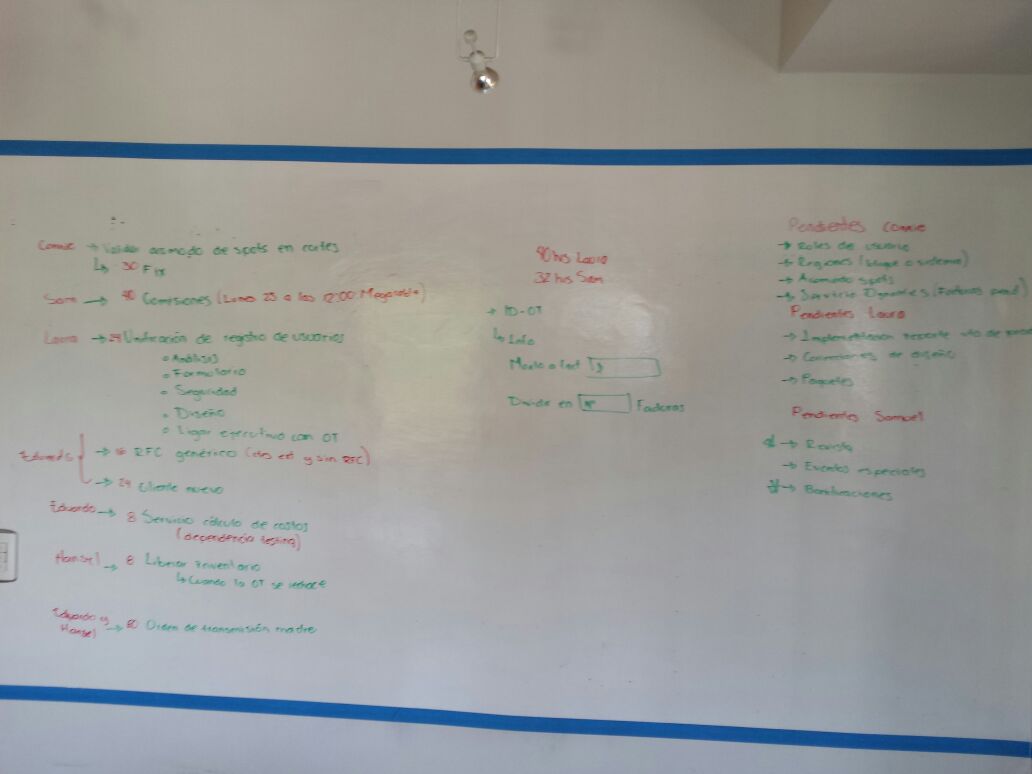 Connie → Validar acomodo de spots en cortes
↳ 30 Fix
Sam → 40 Comisiones (Lunes 25 a las 12:00 Megacable)
Laura → 24 Unificación de registro de usuarios
○ Análisis
○ Formulario
○ Seguridad
○ Diseño
○ Ligar ejecutivo con OT
Eduardo → 16 RFC genérico (ctes ext y sin RFC)
→ 24 Cliente nuevo
Eduardo → 8 Servicio cálculo de costos
(dependencia testing)
Hansel → 8 Liberar inventario
↳ Cuando la OT se rechace
Eduardo y
Hansel → 80 Orden de transmisión madre
90 hrs Laura
32 hrs Sam
→ ID-OT
↳ Info
Monto a fact
Divide en Facturas
Pendientes Connie
→ Roles de usuario
→ Regiones (bloque o sistema)
→ Acomodo spots
→ Servicio Dynamics (Facturas pend)
Pendientes Laura
→ Implementación reporte
→ Correcciones de diseño
→ Paquetes
Pendientes Samuel
→ Revista
→ Eventos especiales
→ Bonificaciones